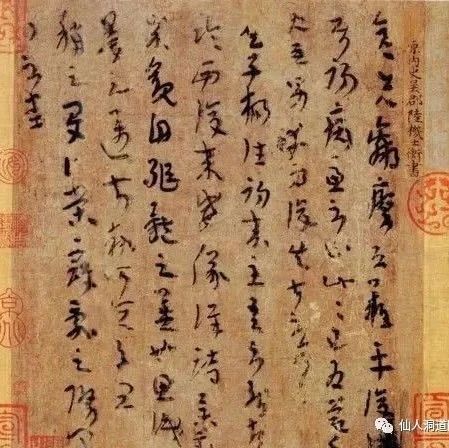 原内史吳郡陸機士衡書
先羸瘵恐難平復
往屬初病慮不止此此已為慶
使唯男幸為復失前憂
子楊往初來主吾不能盡
臨西復來威儀詳跱舉
成觀自軀體之美也思識
量之邁前執所恒有宜
稱之夏伯榮寇亂之際聞
問不悉
仙人洞道